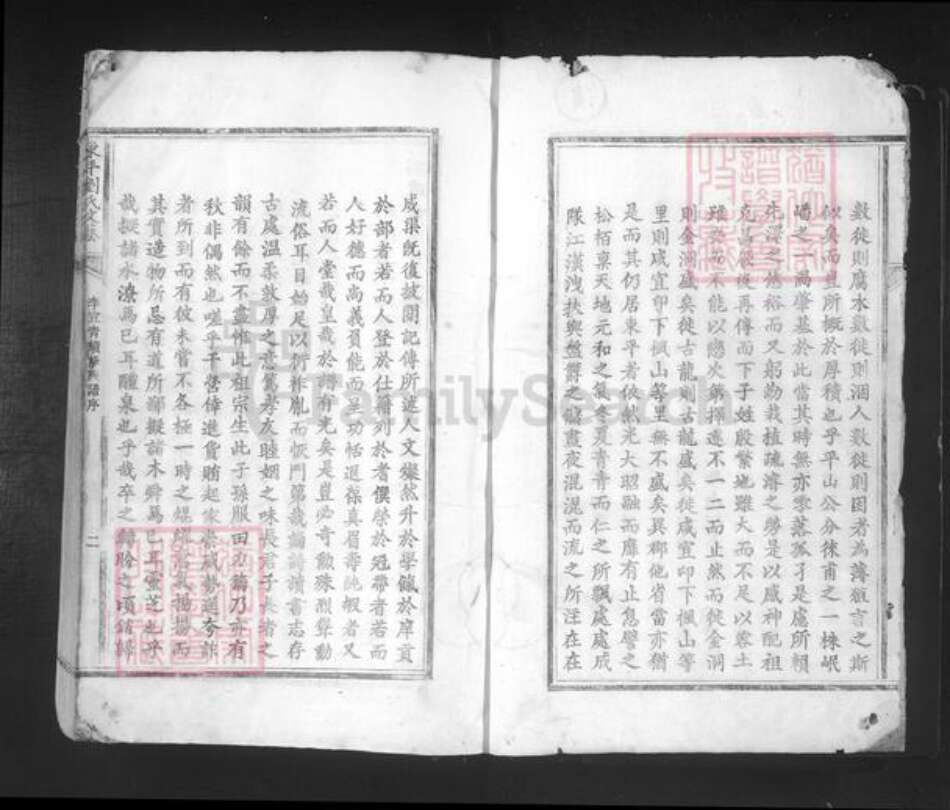 數徙則腐水數徙則涸人數徙則困者為薄敏言之斯
似矣而豈所概於厚積也乎平山公分徠甫之一株岷
嶓之一濶肇基於此當其時無亦零落孤孑是處所賴
先澤之悠裕而又躬勤栽植疏濬之勞是以感神配祖
克昌厥後再傳而下子姓殷繁地雖大而不足以容土
雖安而不能以戀次第擇遷不一二而止然而徙金洞
則金洞盛矣徙古龍則古龍盛矣徙咸宜卬下楓山等
里則咸宜卬下楓山等里無不盛矣異郡他省當亦猶
是而其仍居東平者依然光大昭融而靡有止息譬之
松栢稟天地元和之氣冬夏青青而仁之所飄處處成
隊江漢洩扶輿盤欝之 晝夜混混而流之所注在在
成渠既復披閱記傳所述人文燦然升於學餼於庠貢
於部者若而人登於仕籍列於者僎榮於冠帶者若而
人好德而尚義負能而呈功恬退葆真眉壽純嘏者又
若而人堂哉皇哉於譜有光矣是豈必奇勳殊烈聳動
流俗耳目始足以衍祚胤而恢門第哉論詩讀書志存
古處溫柔敦厚之意篤孝友睦婣之味長君子長者之
韻有餘而不盡惟此祖宗生此子孫服田力穡乃亦有
秋非偶然也嗟乎干營倖進貨賄起家崇威勢逞夸詐
者所到而有彼未嘗不各極一時之焜燿意氣揚揚而
其實造物所忌有道所鄙擬諸木舜焉已耳靈芝也乎
哉擬諸水潦焉已耳醴泉也乎哉卒之 聆之頃銷歸
東平劉氏文
譜序
二
FamilySearch